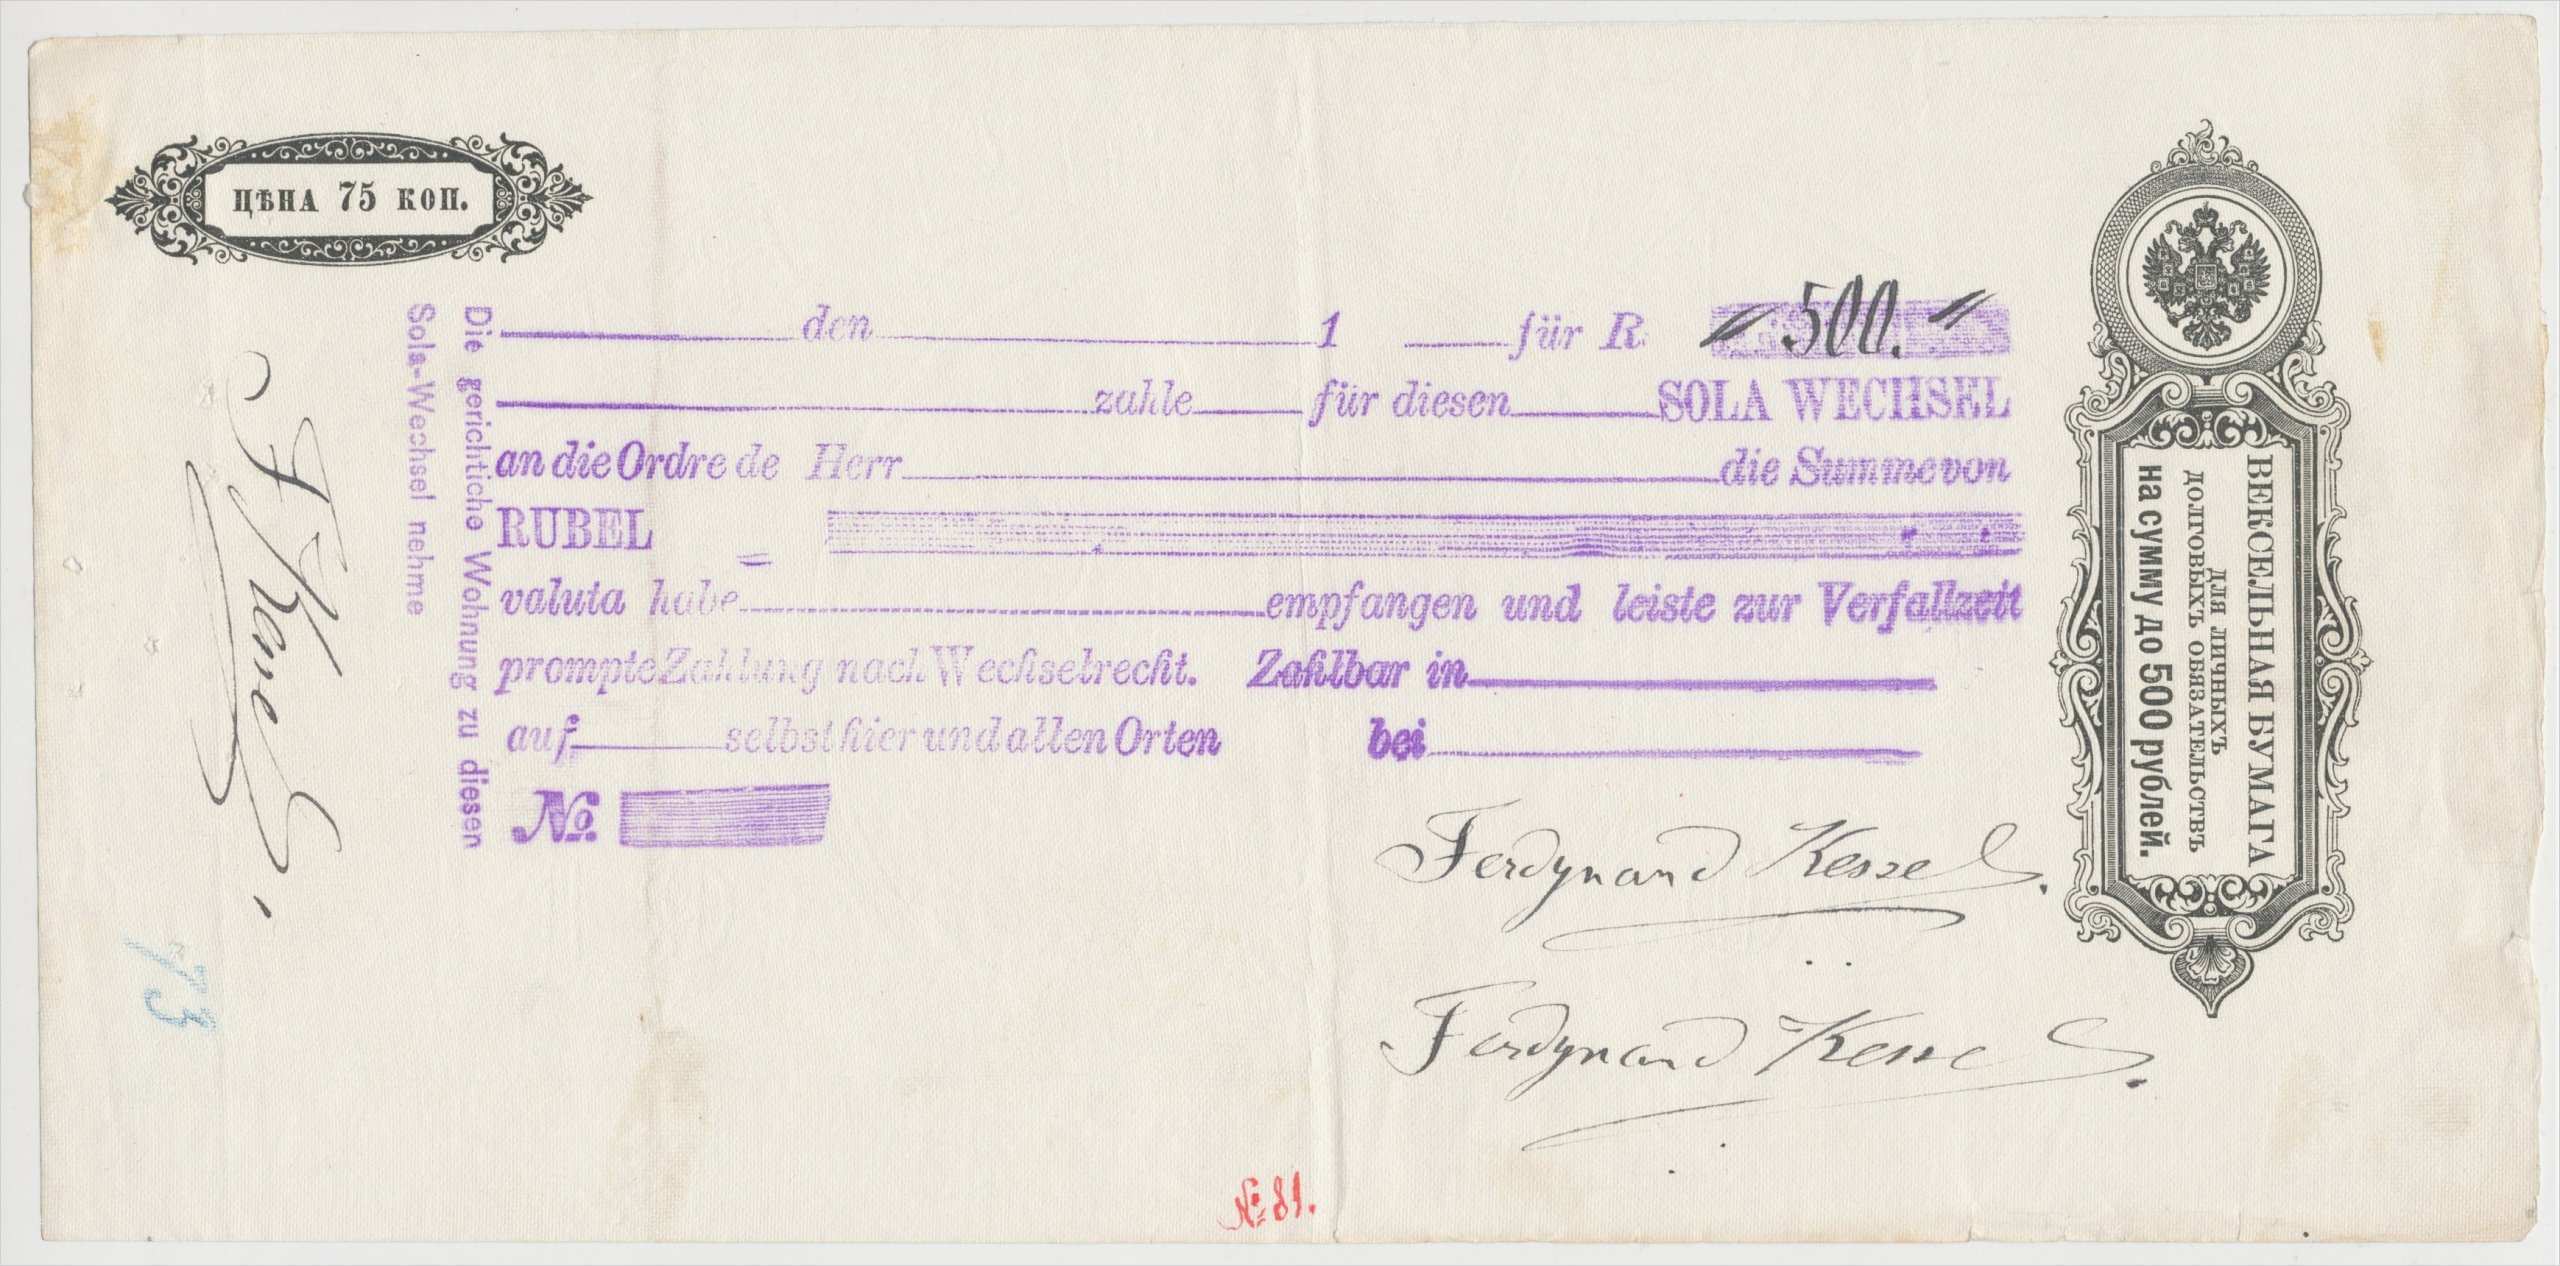 ЦѢНА 75 КОП.
den 1 für R. 500.
zahle für diesen SOLA WECHSEL
an die Ordre de Herr die Summe von
RUBEL
valuta habe empfangen und leiste zur Verfallzeit
prompte Zahlung nach Wechselrecht. Zahlbar in
auf selbst hier und allen Orten bei
No
Die gerichtliche Wohnung zu diesen
Sola-Wechsel nehme
F Kessel.
73
Ferdynand Kessel.
Ferdynand Kessel.
№ 81.
ВЕКСЕЛЬНАЯ БУМАГА
ДЛЯ ЛИЧНЫХЪ
ДОЛГОВЫХЪ ОБЯЗАТЕЛЬСТВЪ
на сумму до 500 рублей.